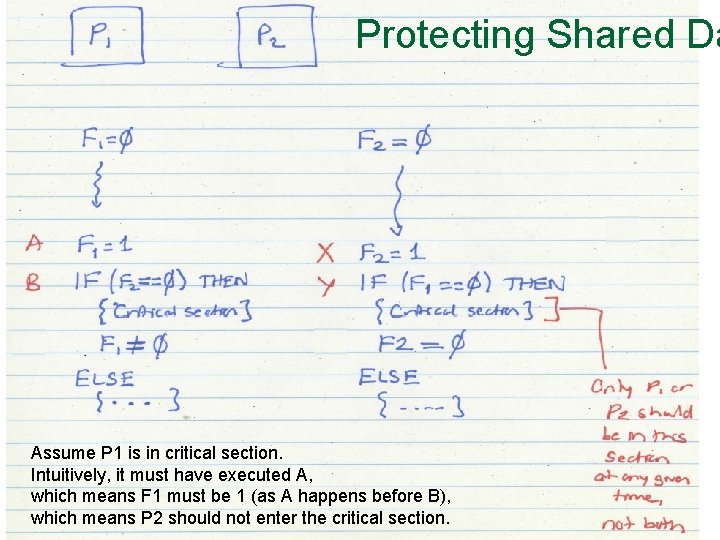 P1 P2 Protecting Shared Da
F1=Ø F2=Ø
A F1=1 X F2=1
B IF (F2==Ø) THEN Y IF (F1==Ø) THEN
{Critical section} {Critical section}
F1≠Ø F2=Ø
ELSE ELSE
{...} {....}
Only P1 or
P2 should
be in this
section
at any given
time,
not both
Assume P1 is in critical section.
Intuitively, it must have executed A,
which means F1 must be 1 (as A happens before B),
which means P2 should not enter the critical section.